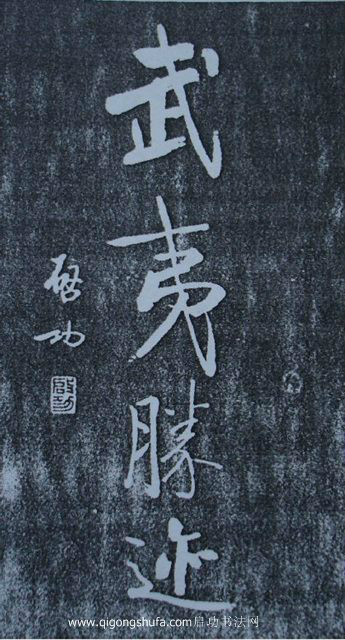 武夷勝迹
啓功
啓功
www.qigongshufa.com启功书法网